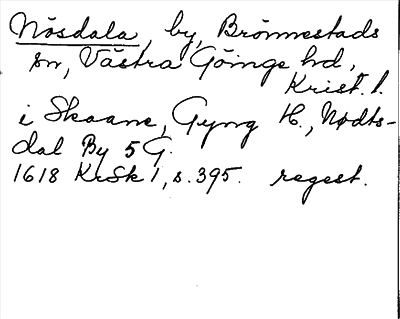 Nösdala, by, Brönnestads
sn, Västra Göinge hd,
Krist. l.
i Skaane, Gyng H., Nødts-
dal By 5 G.
1618 KrSk 1, s. 395. regest.